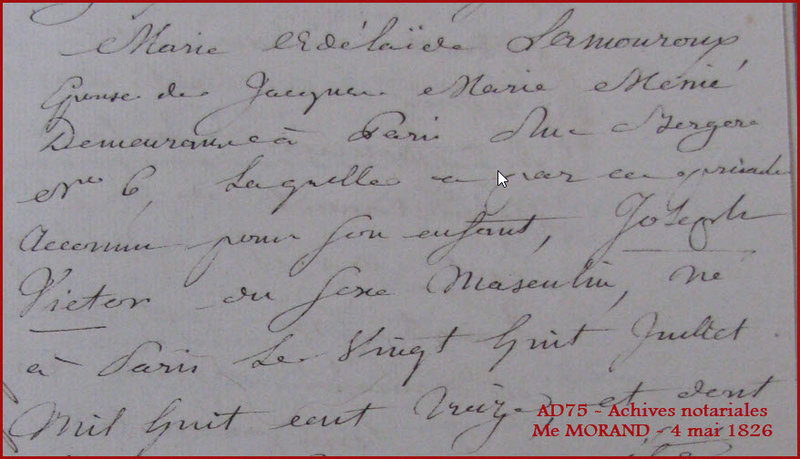 Marie Adélaïde Lamouroux,
Epouse de Jacques Marie Ménié
Demeurante à Paris Rue Bergere
No 6, Laquelle a par ces présentes
reconnu pour son enfant, Joseph
Victor du sexe Masculin, né
à Paris le Vingt huit Juillet
Mil huit cent treize, et dont
AD75 - Achives notariales
Me MORAND - 4 mai 1826